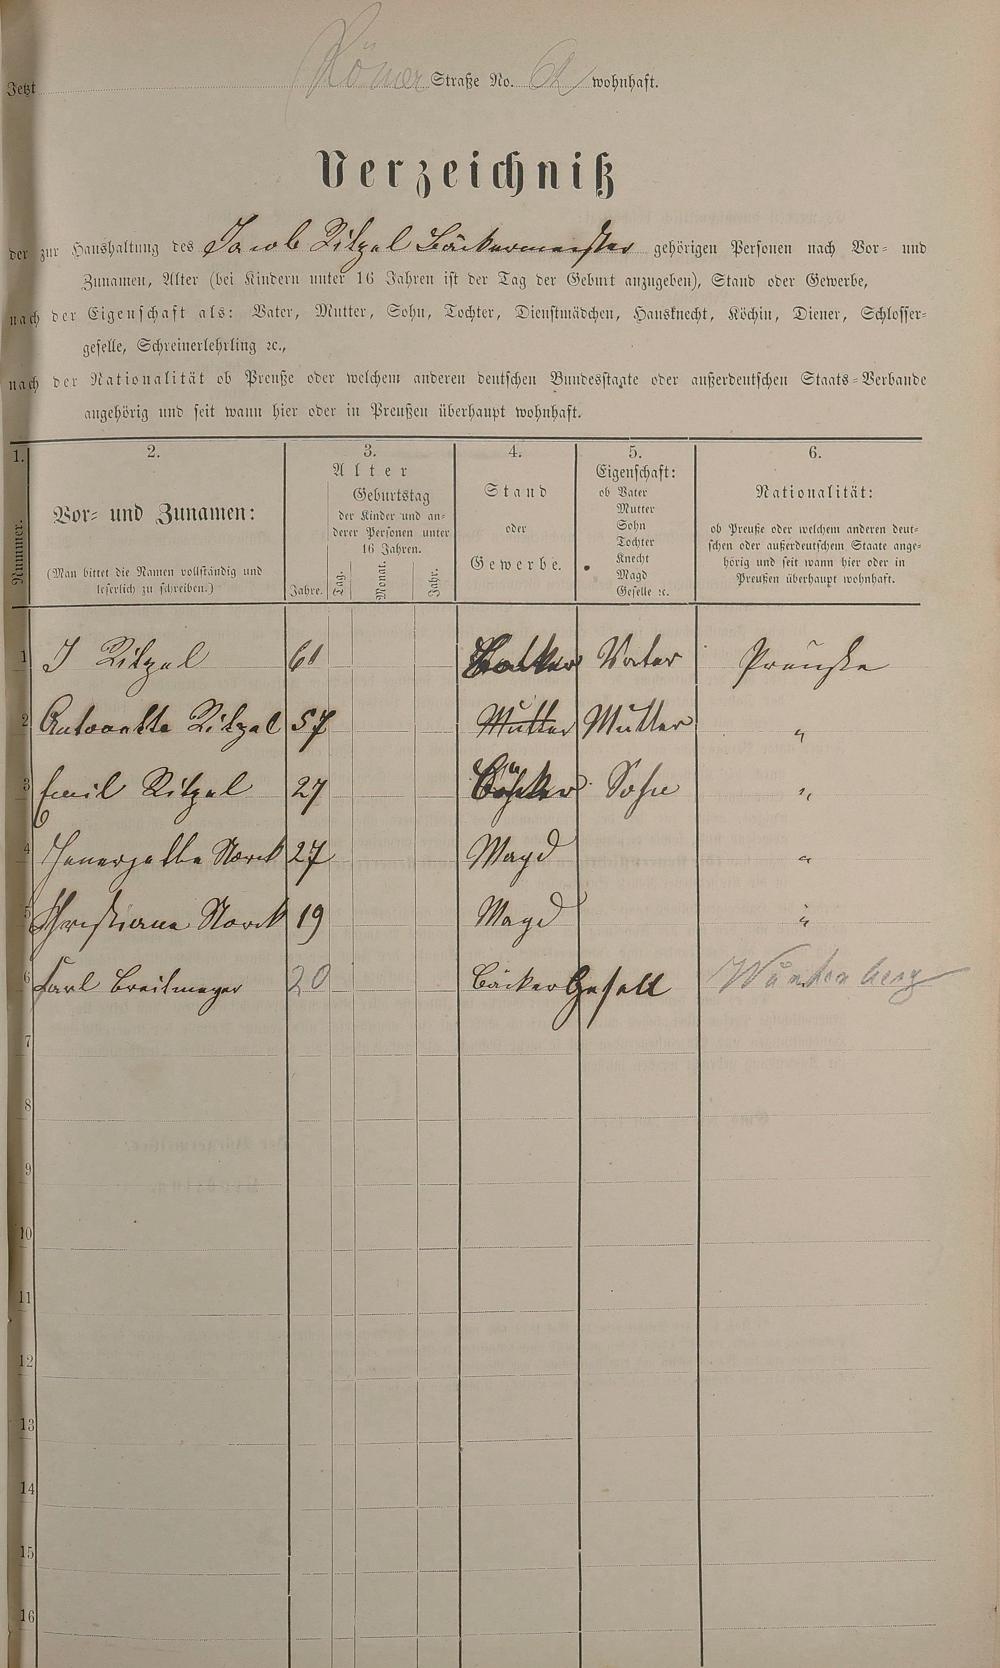 Jetzt Römer Straße No. 62 wohnhaft.
Verzeichniß
der zur Haushaltung des Jacob Ritzel Bäckermeister gehörigen Personen nach Vor- und
Zunamen, Alter (bei Kindern unter 16 Jahren ist der Tag der Geburt anzugeben), Stand oder Gewerbe,
nach der Eigenschaft als: Vater, Mutter, Sohn, Tochter, Dienstmädchen, Hausknecht, Köchin, Diener, Schlosser-
geselle, Schreinerlehrling ꝛc.,
nach der Nationalität ob Preuße oder welchem anderen deutschen Bundesstaate oder außerdeutschen Staats-Verbande
angehörig und seit wann hier oder in Preußen überhaupt wohnhaft.
1. 2. 3. 4. 5. 6.
Nummer.
Vor- und Zunamen:
(Man bittet die Namen vollständig und
leserlich zu schreiben.)
Alter
Geburtstag
der Kinder und an-
derer Personen unter
16 Jahren.
Jahre. Tag. Monat. Jahr.
Stand
oder
Gewerbe.
Eigenschaft:
ob Vater
Mutter
Sohn
Tochter
Knecht
Magd
Geselle ꝛc.
Nationalität:
ob Preuße oder welchem anderen deut-
schen oder außerdeutschem Staate ange-
hörig und seit wann hier oder in
Preußen überhaupt wohnhaft.
1 J Ritzel 61 Vater Preuße
2 Ritzel 57 Mutter Mutter "
3 Emil Ritzel 27 Sohn "
4 27 Magd "
5 Christiane 19 Magd "
6 Carl Breitmayer 20 Bäcker Gesell
7
8
9
10
11
12
13
14
15
16